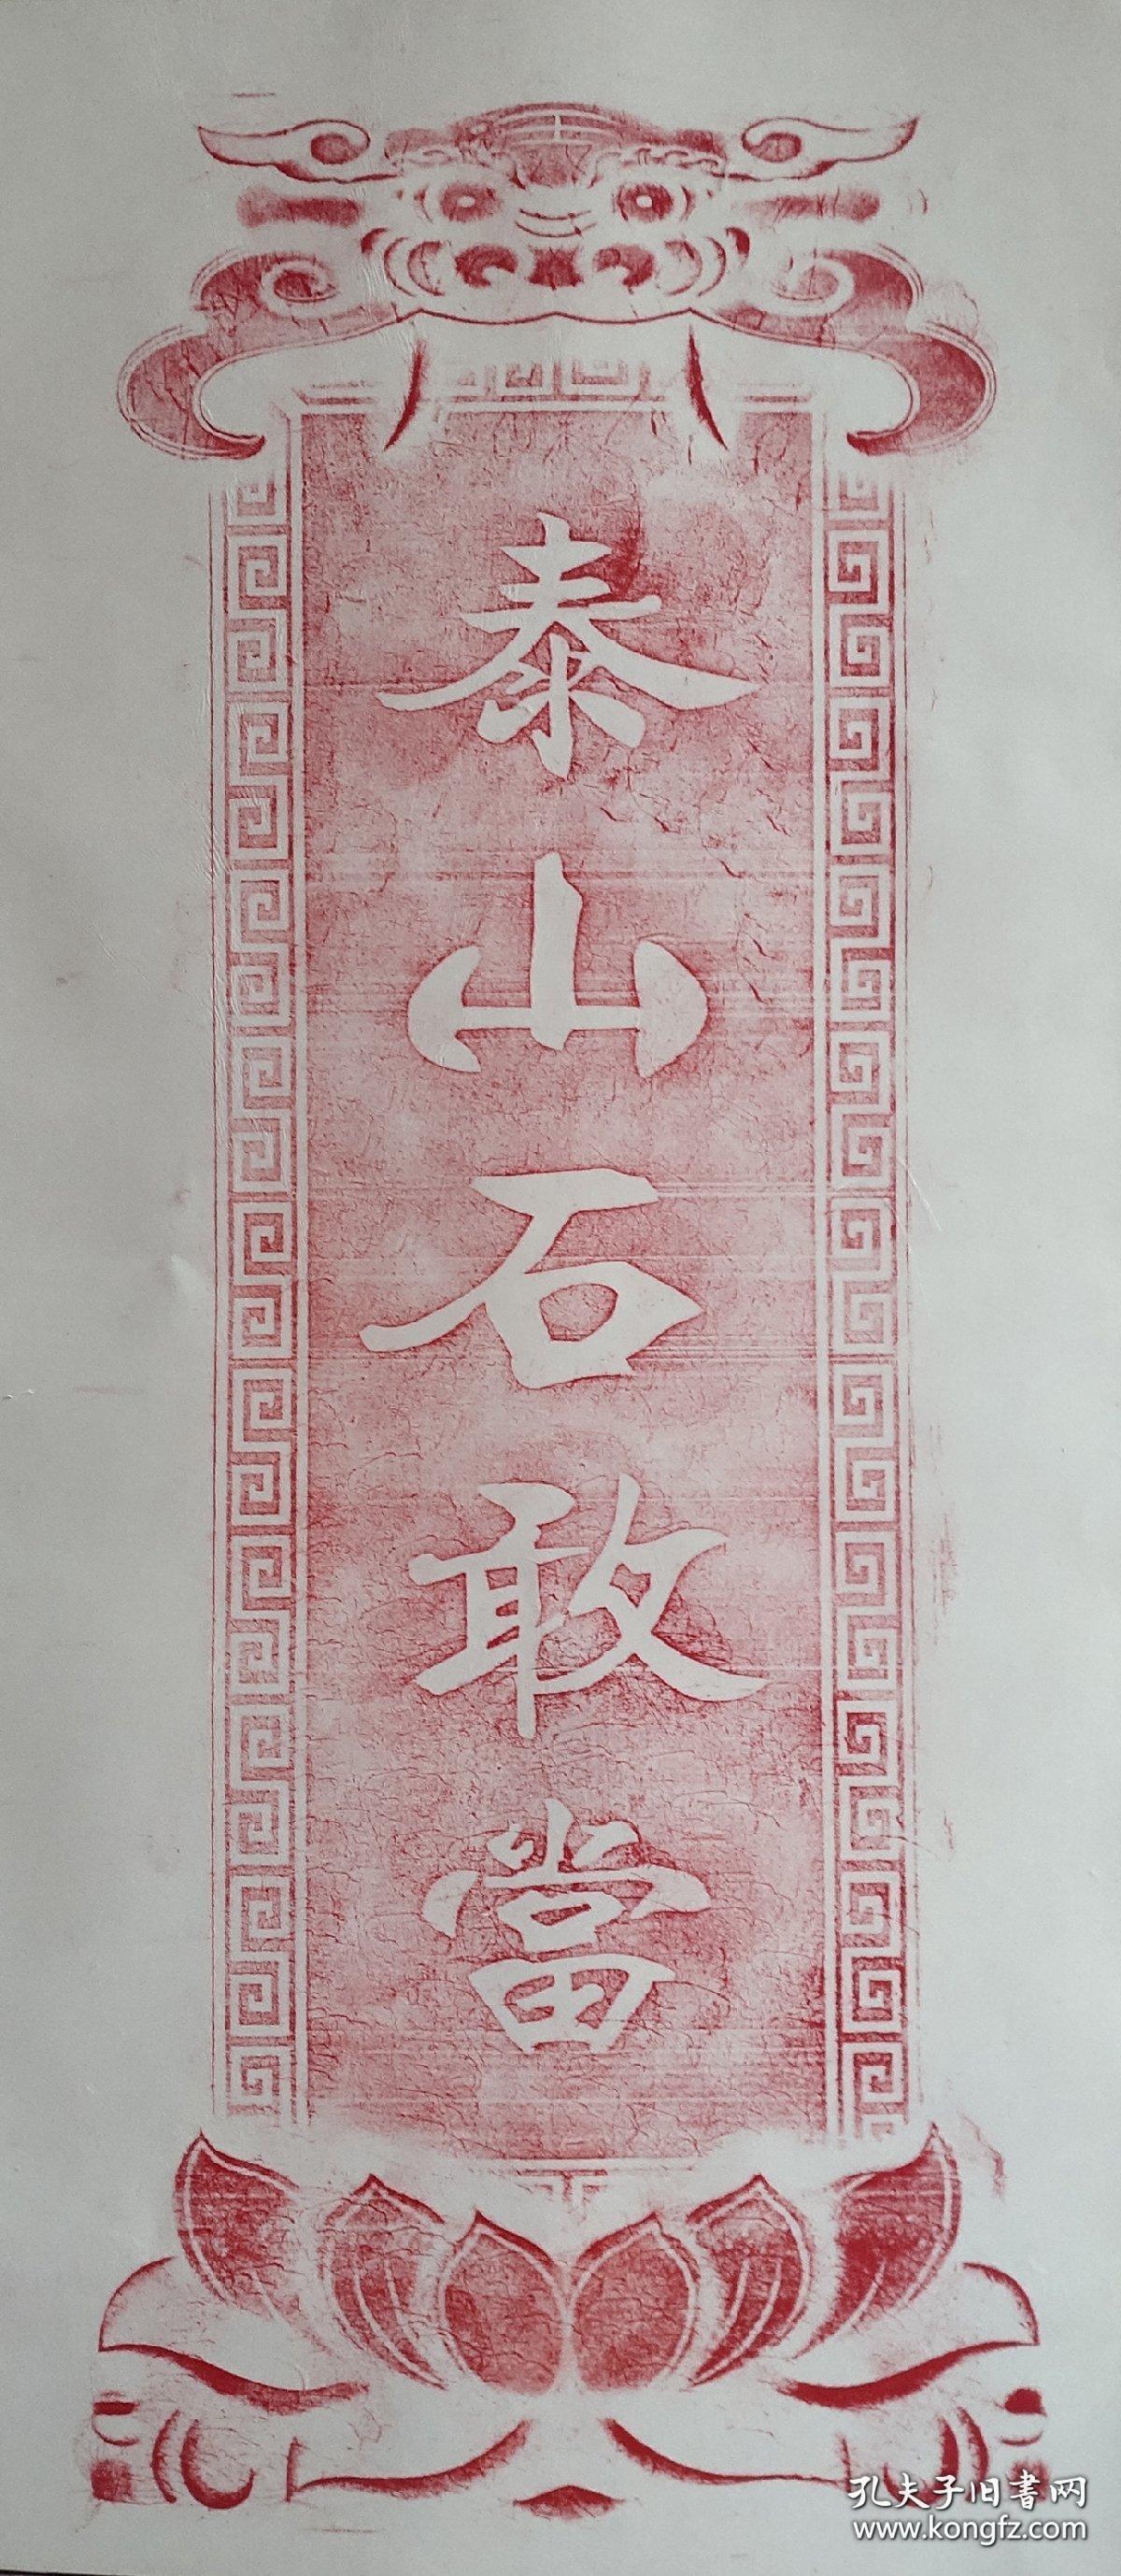 泰山石敢當
孔夫子旧書网
www.kongfz.com